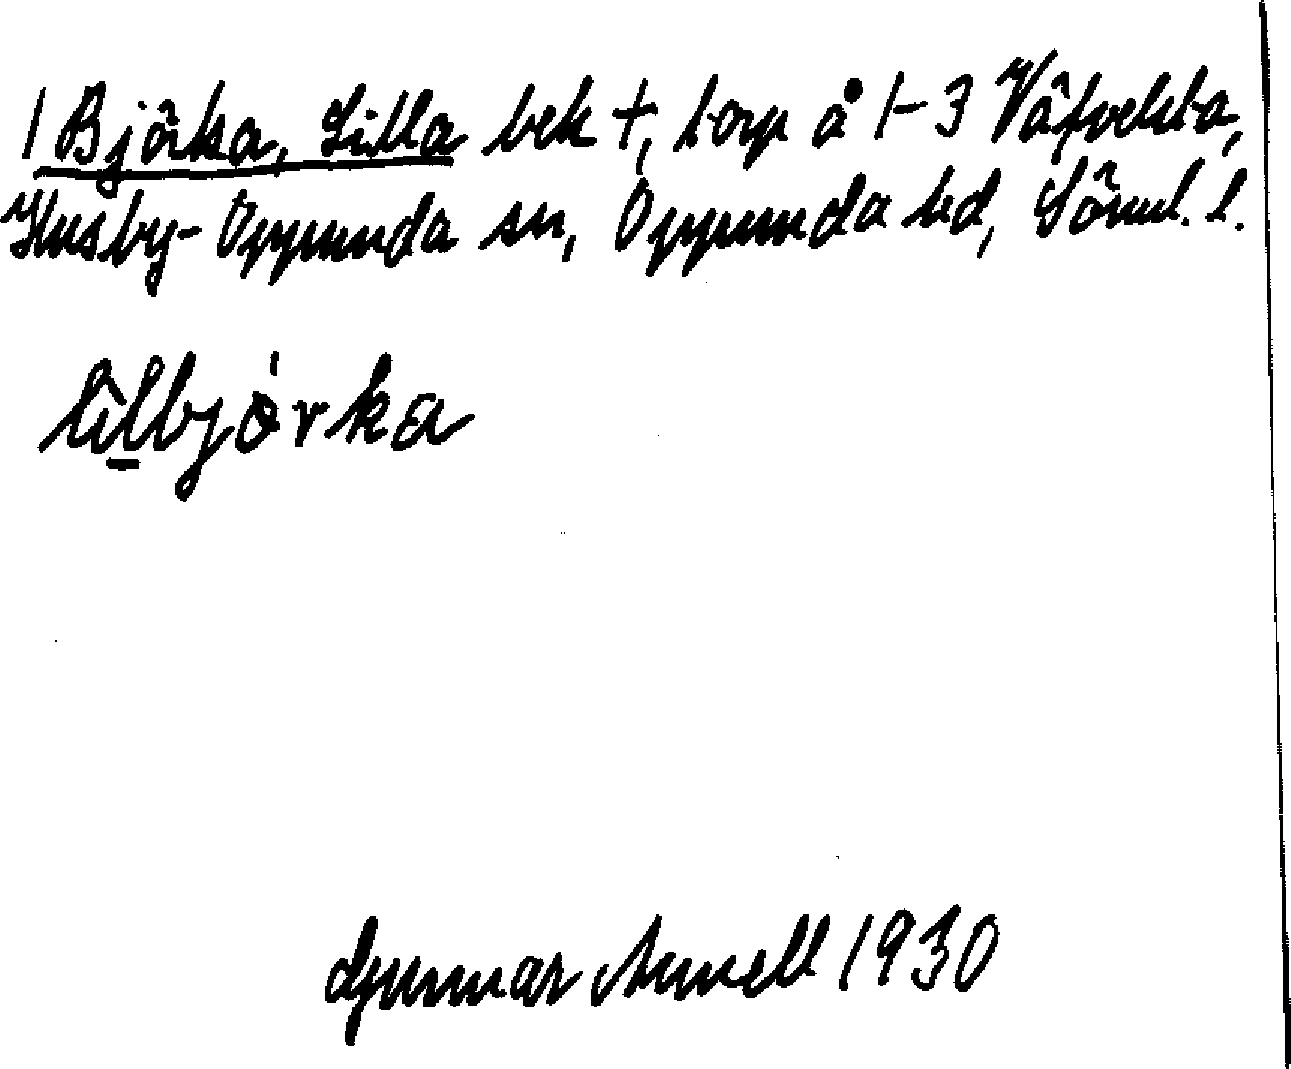 1 Björka, Lilla bek †, torp å 1-3 Väfvekla,
Husby-Oppunda sn, Oppunda hd, Söml. l.
lìlbjórka
Gunnar Annell 1930